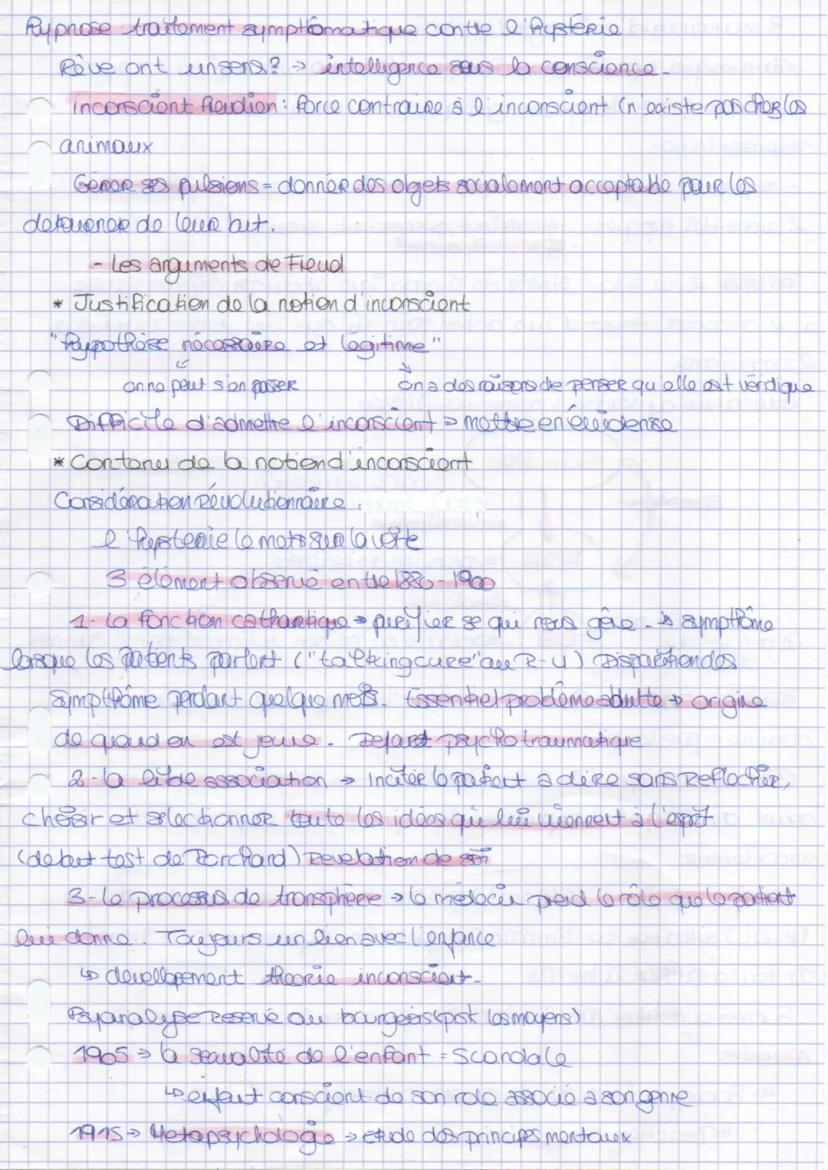 Hypnose traitement symptômatique contre l'hystérie
Rêve ont un sens? → intelligence sous la conscience.
inconscient freudien : force contraire à l'inconscient (n'existe pas chez les
animaux
Gérer ses pulsions = donner des objets socialement acceptable pour les
détourner de leur but.
- Les arguments de Freud
* Justification de la notion d'inconscient
"hypothèse nécessaire et légitime"
on ne peut s'en passer on a des raisons de penser qu'elle est véridique
Difficile d'admettre l'inconscient → mettre en évidense
* Contenu de la notion d'inconscient
Considération révolutionnaire.
l'hysterie le mets sur la voie
3 élément observé entre 1880-1900
1- La fonction cathartique → purifier se qui nous gêne. ↳ symptôme
lorsque les patients parlent ("talking cure" au R-U) Disparition des
symptôme pendant quelque mois. Essentiel problème adulte → origine
de quand on est jeune. psychotraumatique
2- la libre association → Inciter le patient a dire sans réflechir,
choisir et sélectionner toute les idées qui lui viennent à l'esprit
(debut test de ) Revelation de soi
3- Le processus de transphère → le médecin prend le rôle que le patient
lui donne. Toujours un lien avec l'enfance
↳ devellopement théorie inconscient.
Psyanalyse réservé au bourgeois (pst les moyens)
1905 → la sexualité de l'enfant = Scandale
↳ enfant conscient de son role associé a son genre
1915 → Metapsychologie → etude des principes mentaux